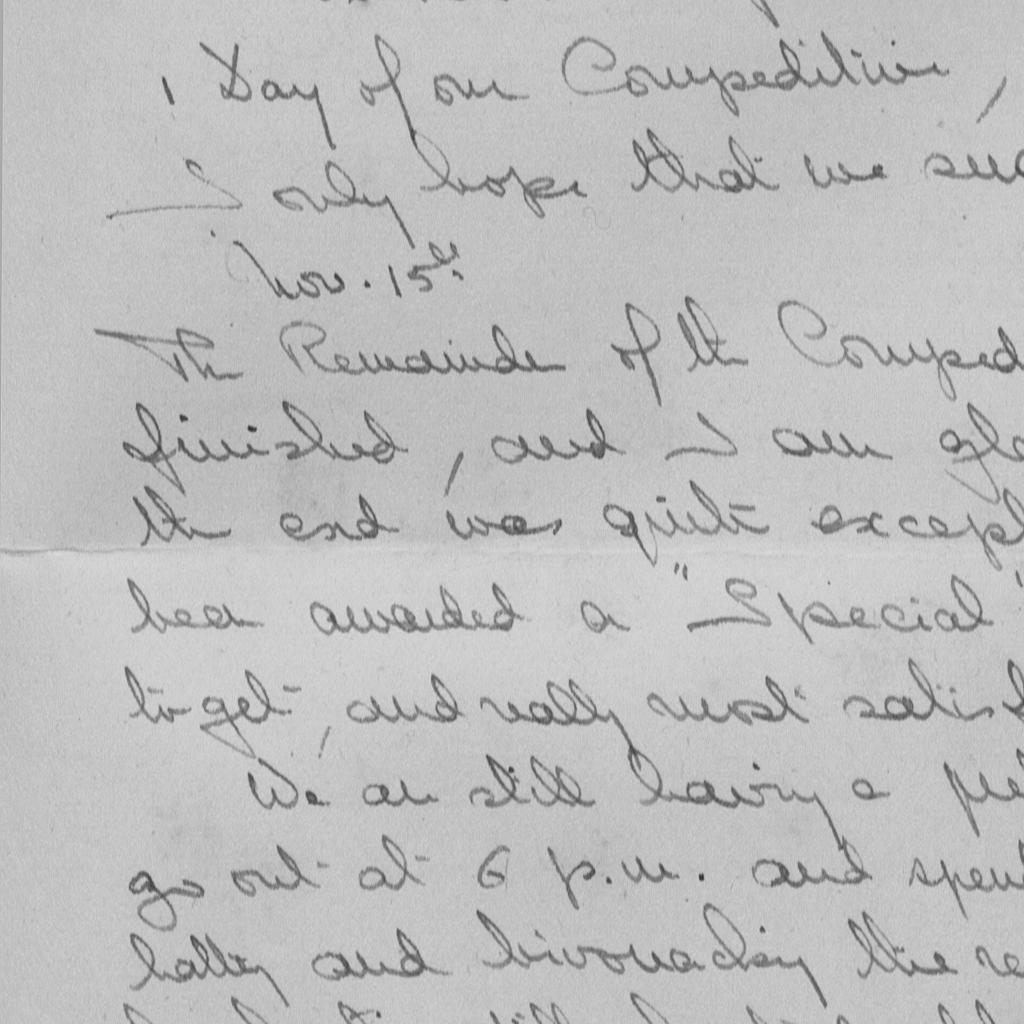 1 Day of our Compedition,
I only hope that we suc
Nov. 15th
The Remainder of the Comped
finished, and I am gla
the end was quite except
been awarded a "Special"
to get, and really most satisf
We are still having a
go out at 6 p.m. and spen
and bivouacking the re